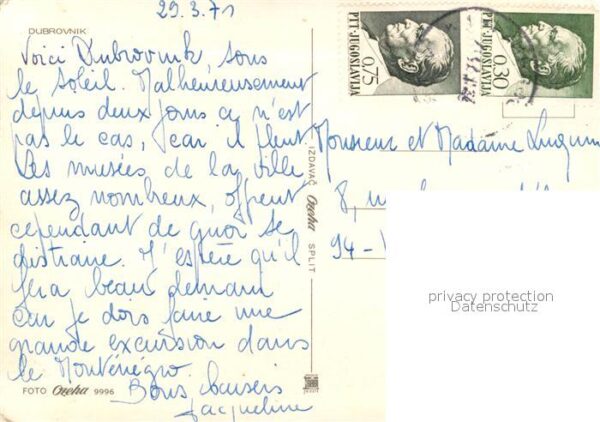 29.3.71
DUBROVNIK
Voici Dubrovnik sous
le soleil. Malheureusement
depuis deux jours ça n'est
pas le cas, car il pleut
Les musées de la ville
assez nombreux, offrent
cependant de quoi se
distraire. J'espère qu'il
fera beau demain
car je dois faire une
grande excursion dans
le Monténégro.
Bons baisers
Jacqueline
FOTO Ozeha 9996
IZDAVAČ Ozeha SPLIT
PTT-JUGOSLAVIJA
0.75
PTT-JUGOSLAVIJA
0.30
Monsieur et Madame
8,
94-
privacy protection
Datenschutz